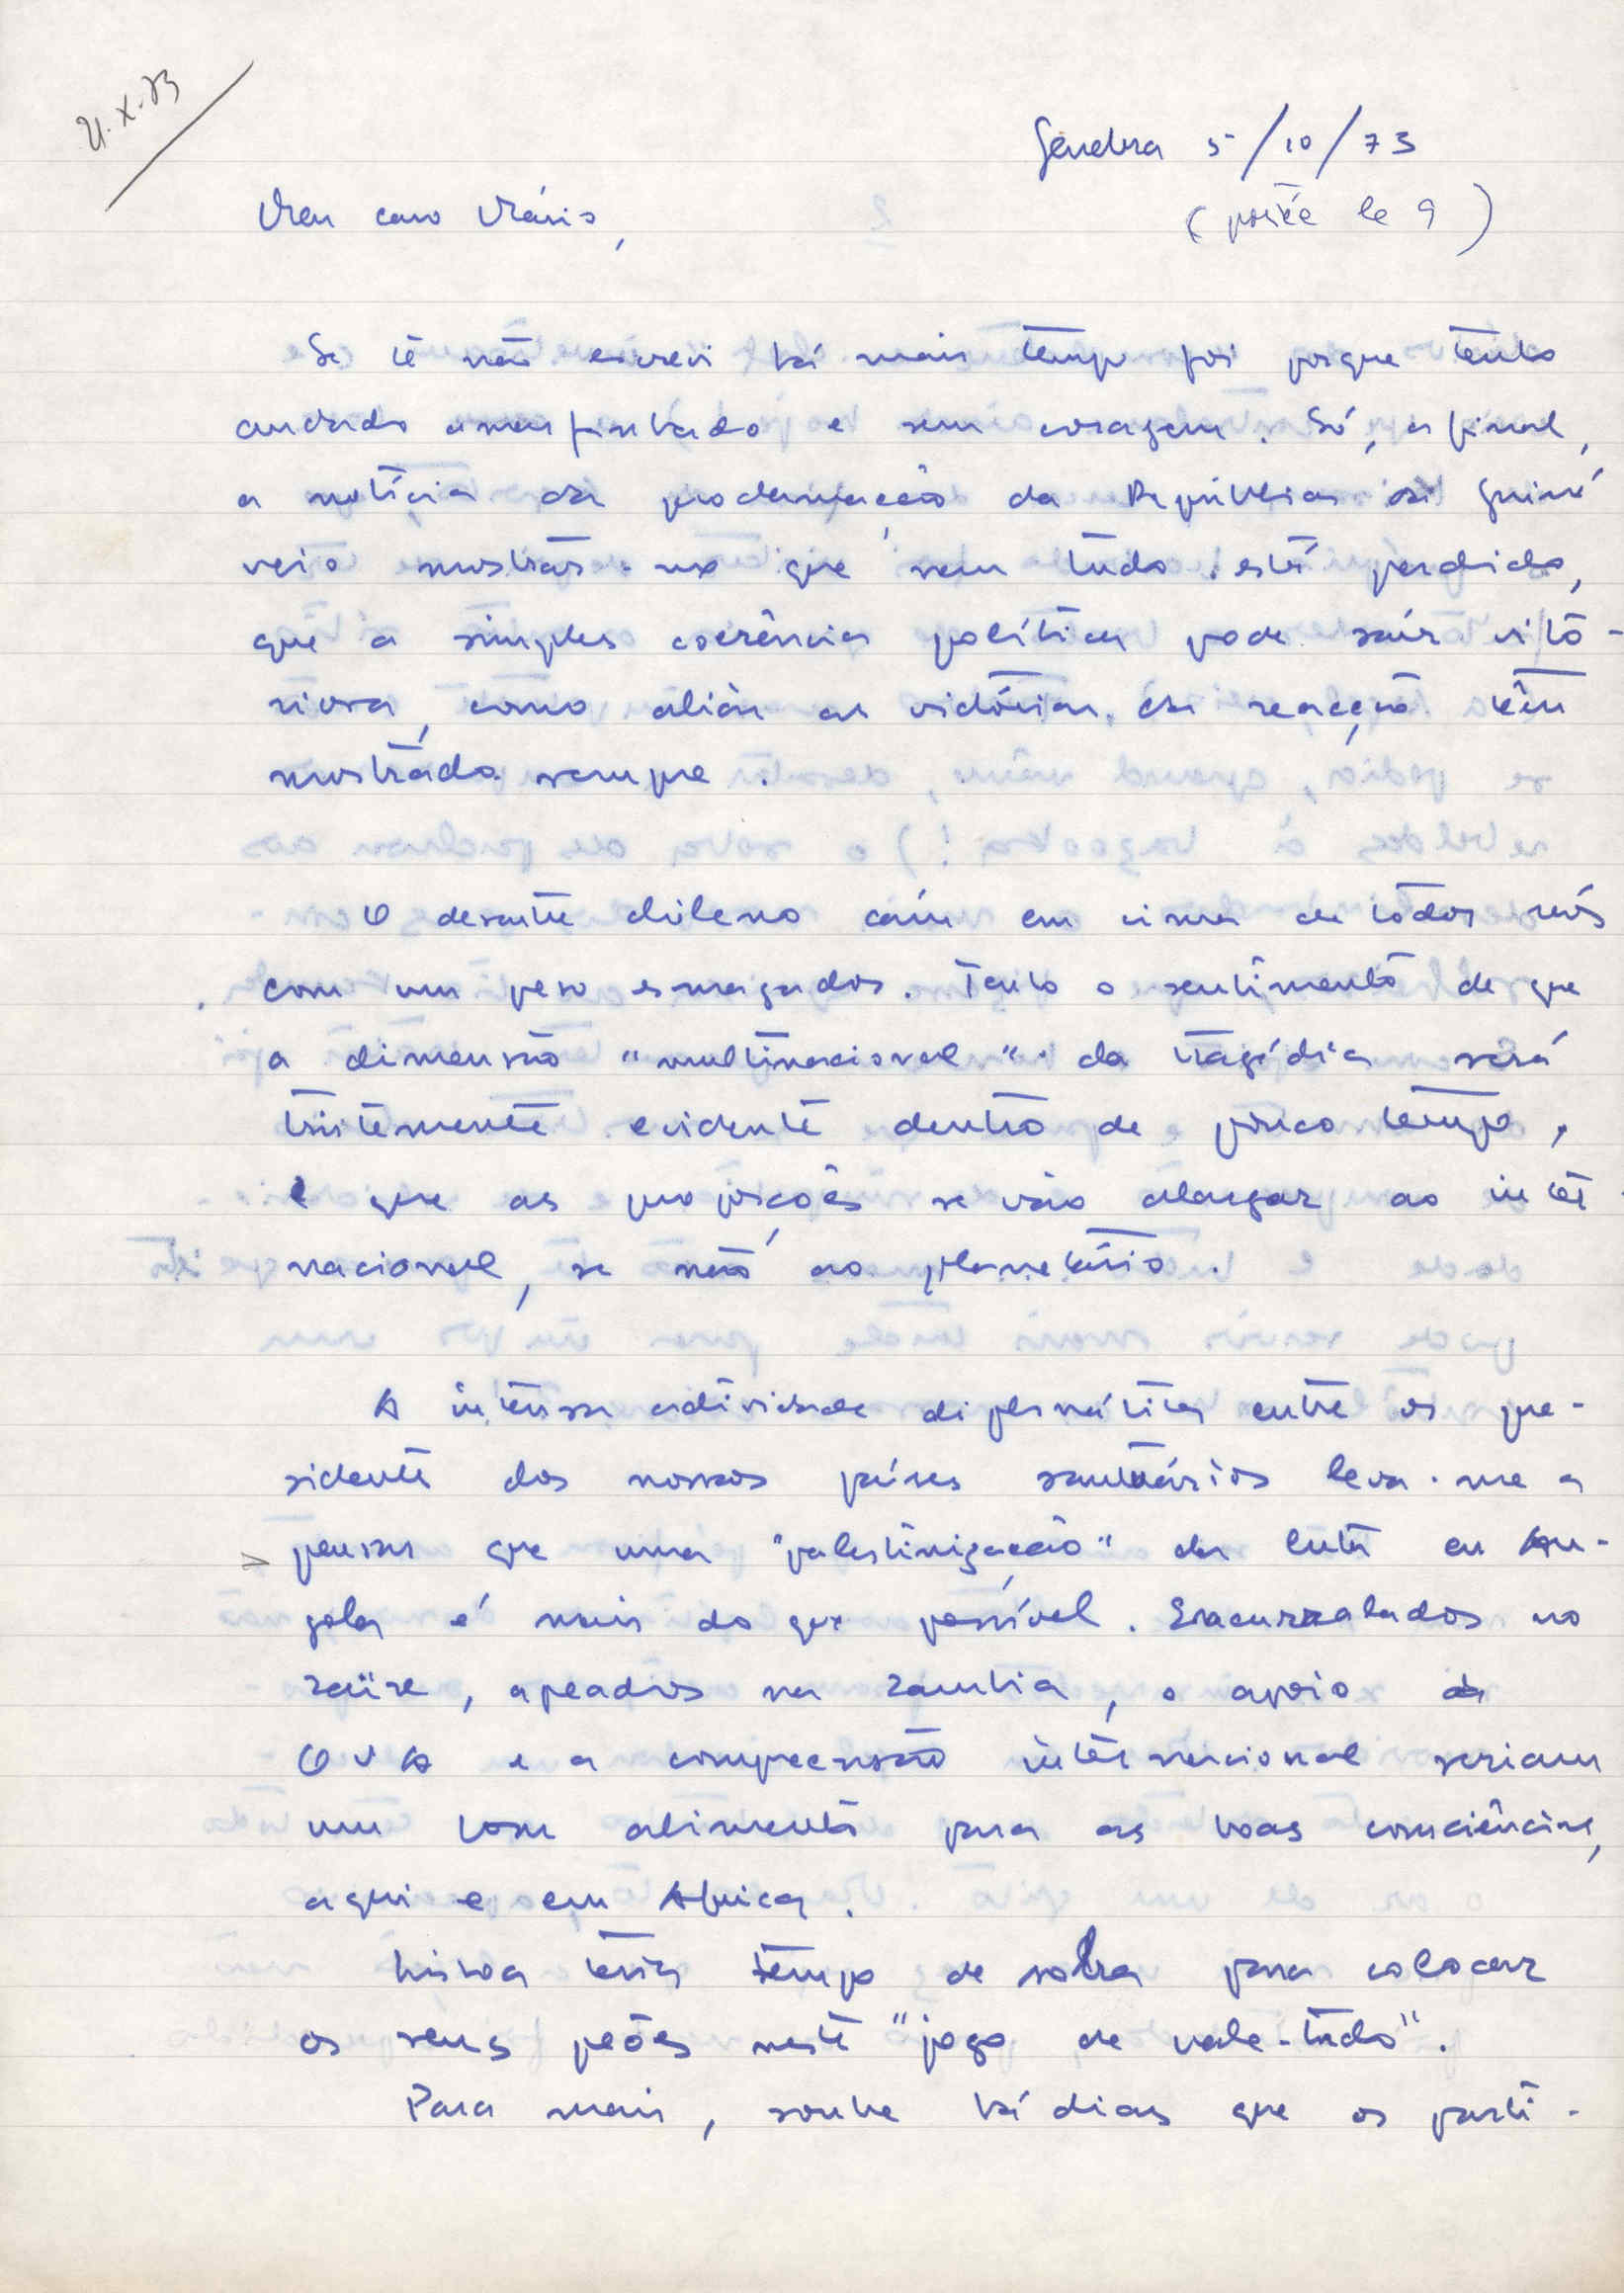 21.X.73
Genebra 5/10/73
(postée le 9)
Meu caro Mário,
Se te não escrevi há mais tempo foi porque tenho
andado amarfanhado e sem coragem. Só, afinal,
a notícia da proclamação da República da Guiné
veio mostrar-me que nem tudo está perdido,
que a simples coerência política pode sair vitó-
riosa, como aliàs as vitórias da reacção têm
mostrado sempre.
O desastre chileno caíu em cima de todos nós
com um peso esmagador. Tenho o sentimento de que
a dimensão "multinacional" da tragédia será
tristemente evidente dentro de pouco tempo,
e que as proporções se vão alargar ao inter
nacional, se não ao planetário.
A intensa actividade diplomática entre os pre-
sidentes dos nossos países santuários leva-me a
pensar que uma "palestinização" da luta em An-
gola é mais do que possível. Encurralados no
Zaïre, apeados na Zambia, o apoio da
OUA e a compreensão internacional seriam
um bom alimento para as boas consciências,
aqui e em Africa.
Lisboa teria tempo de sobra para colocar
os seus peões neste "jogo de vale-tudo".
Para mais, soube há dias que os parti-